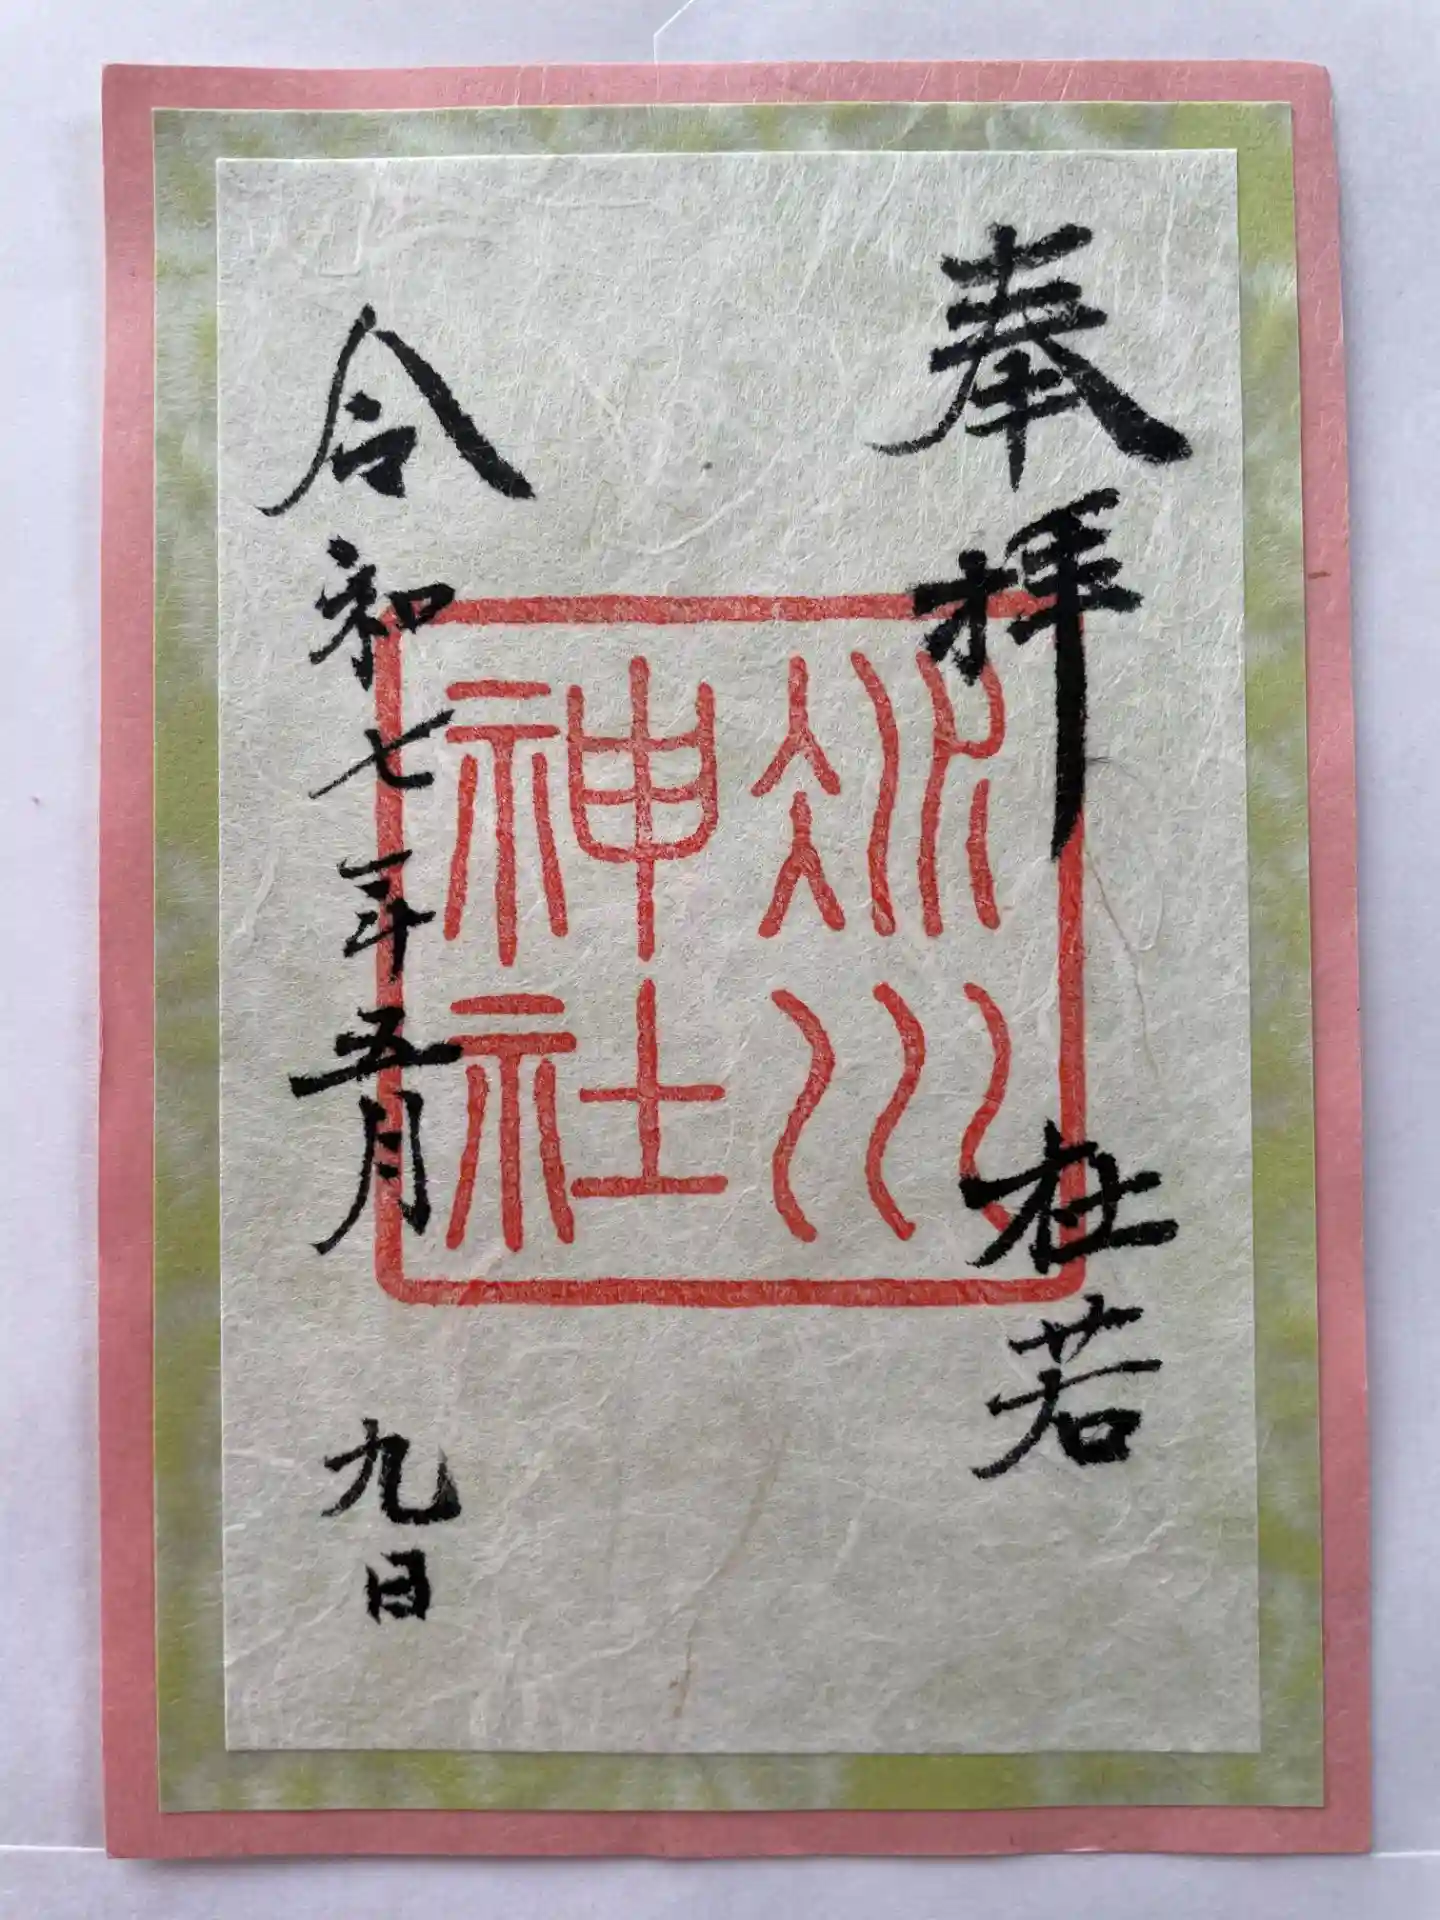 奉拝 杜若
冰川
神社
令和七年五月 九日